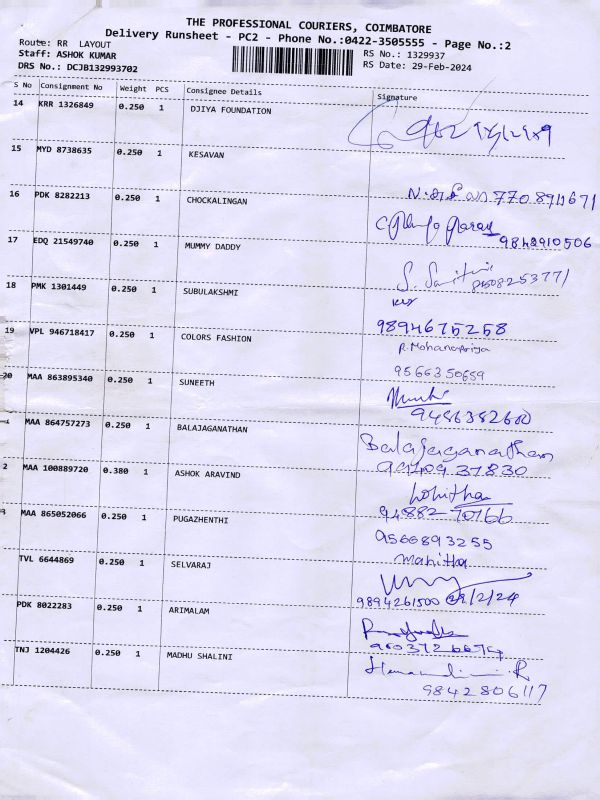 THE PROFESSIONAL COURIERS, COIMBATORE
Delivery Runsheet - PC2 - Phone No.:0422-3505555 - Page No.:2
Route: RR LAYOUT
Staff: ASHOK KUMAR
DRS No.: DCJB132993702
RS No.: 1329937
RS Date: 29-Feb-2024
S No Consignment No Weight PCS Consignee Details Signature
14 KRR 1326849 0.250 1 DJIYA FOUNDATION
15 MYD 8738635 0.250 1 KESAVAN
16 PDK 8282213 0.250 1 CHOCKALINGAN
9842910506
17 EDQ 21549740 0.250 1 MUMMY DADDY
18 PMK 1301449 0.250 1 SUBULAKSHMI
9894675258
19 VPL 946718417 0.250 1 COLORS FASHION
R. Mohanapriya
9566350659
20 MAA 863895340 0.250 1 SUNEETH
9486382600
1 MAA 864757273 0.250 1 BALAJAGANATHAN
Balajaganathan
9940937830
2 MAA 100889720 0.380 1 ASHOK ARAVIND
Lohitha
94882 70166
3 MAA 865052066 0.250 1 PUGAZHENTHI
9566893255
Mahitha
TVL 6644869 0.250 1 SELVARAJ
9894261500 29/2/24
PDK 8022283 0.250 1 ARIMALAM
TNJ 1204426 0.250 1 MADHU SHALINI
9842806117